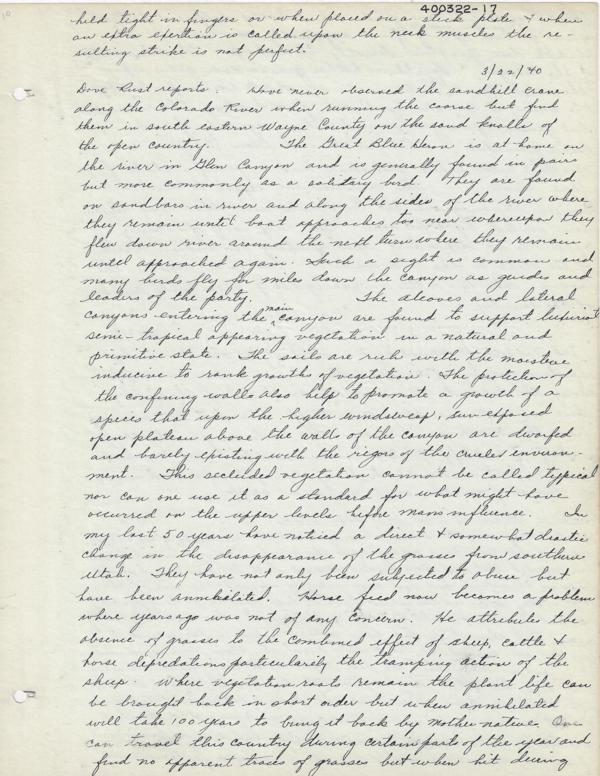 400322-17
held tight in fingers or when placed on a steel plate & when
an extra exertion is called upon the neck muscles the re-
sulting strike is not perfect.
3/22/40
Dove Rust reports: Have never observed the sandhill crane
along the Colorado River when running the coarse but find
them in south eastern Wayne County on the sand knolls of
the open country. The Great Blue Heron is at home on
the river in Glen Canyon and is generally found in pairs
but more commonly as a solitary bird. They are found
on sandbars in river and along the sides of the river where
they remain until boat approaches too near whereupon they
flew down river around the next turn where they remain
until approached again. Such a sight is common and
many birds fly for miles down the canyon as guides and
leaders of the party. The alcoves and lateral
canyons entering the main canyon are found to support luxuriant
semi-tropical appearing vegetation in a natural and
primitive state. The soils are rich with the moisture
inducive to rank growths of vegetation. The protection of
the confining walls also help to promote a growth of a
species that upon the higher windswept, sun exposed
open plateau above the walls of the canyon are dwarfed
and barely existing with the rigors of the crueler environ-
ment. This secluded vegetation cannot be called typpical
nor can one use it as a standard for what might have
occurred on the upper levels before mans influence. In
my last 50 years have noticed a direct & somewhat drastic
change in the disappearance of the grasses from southern
Utah. They have not only been subjected to abuse but
have been annihilated. Horse feed now becomes a problem
where years ago was not of any concern. He attributes the
absence of grasses to the combined effect of sheep, cattle &
horse depredations particularly the tramping action of the
sheep. Where vegetation roots remain the plant life can
be brought back in short order but when annihilated
will take 100 years to bring it back by mother nature. One
can travel this country during certain parts of the year and
find no apparent traces of grasses but when hit during